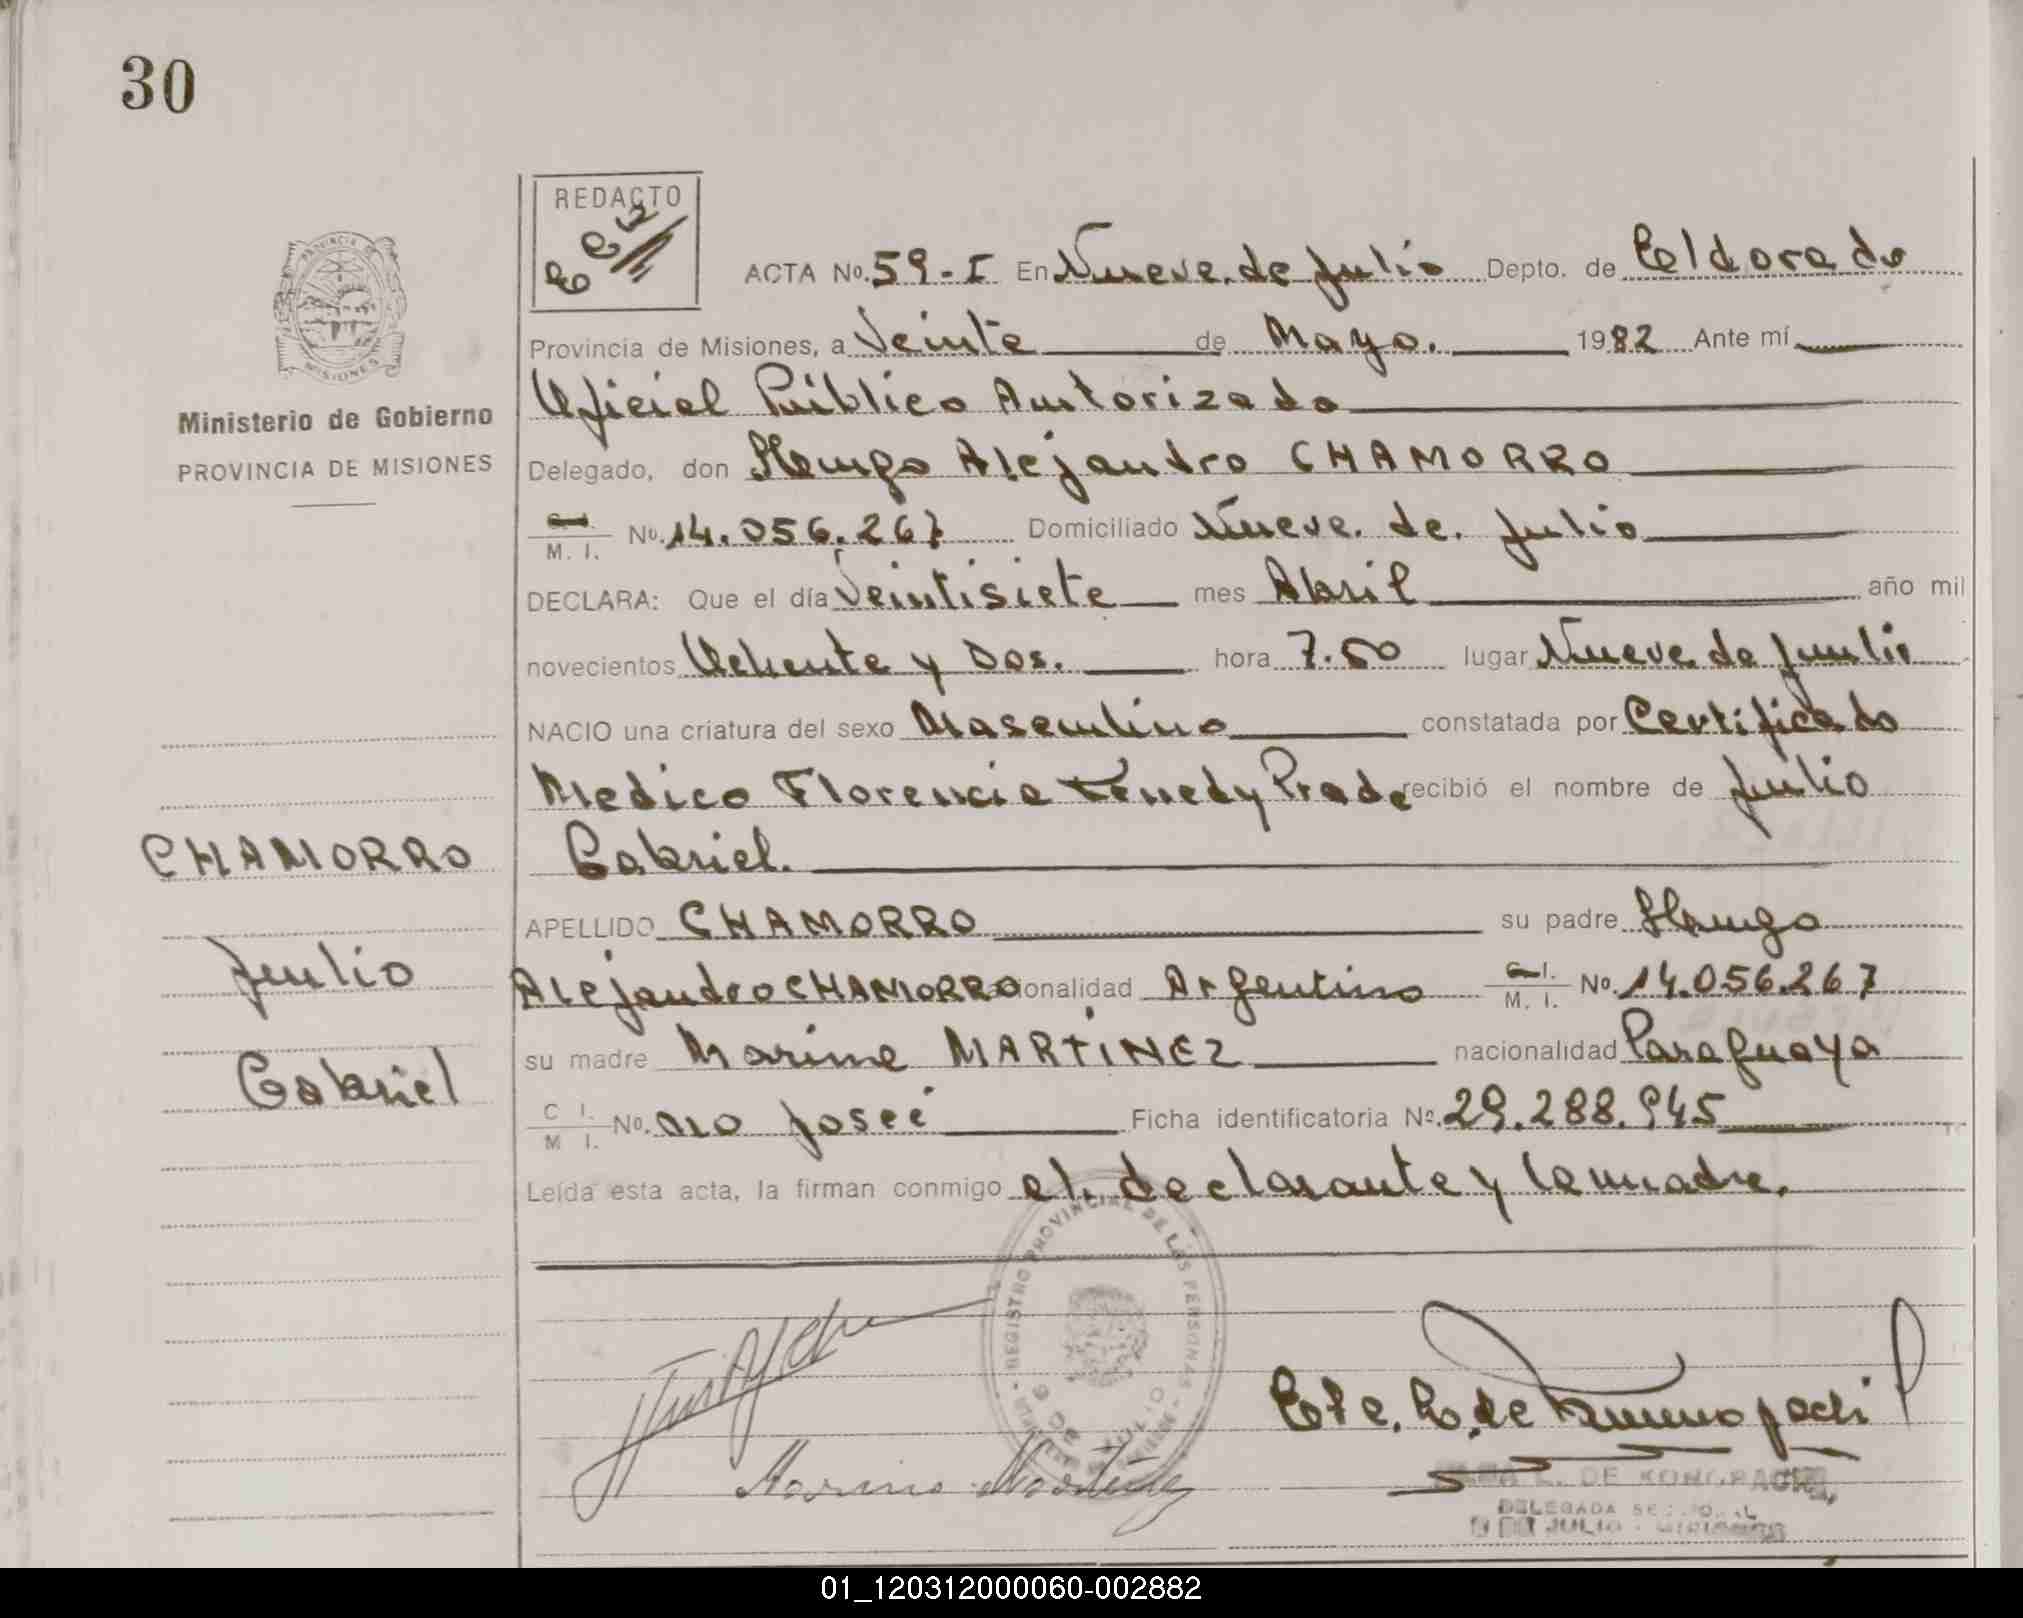 30
REDACTO
ACTA No. 59-I En Nueve de Julio Depto. de Eldorado
Provincia de Misiones, a Veinte de Mayo. 1982 Ante mí
Oficial Público Autorizado
Delegado, don Hugo Alejandro CHAMORRO
M. I. No. 14.056.267 Domiciliado Nueve de Julio
DECLARA: Que el día Veintisiete mes Abril año mil
novecientos Ochenta y Dos. hora 7.50 lugar Nueve de Julio
NACIO una criatura del sexo Masculino constatada por Certificado
Medico Florencia Kenedy Prade recibió el nombre de Julio
Gabriel.
APELLIDO CHAMORRO su padre Hugo
Alejandro CHAMORRO nacionalidad Argentino C. I. M. I. No. 14.056.267
su madre Marina MARTINEZ nacionalidad Paraguaya
C I. M I. No. no posee Ficha identificatoria Nº. 29.288.945
Leída esta acta, la firman conmigo el declarante y la madre.
PROVINCIA DE MISIONES
Ministerio de Gobierno
PROVINCIA DE MISIONES
CHAMORRO
Julio
Gabriel
REGISTRO PROVINCIAL DE LAS PERSONAS
9 DE JULIO
Marina Martinez
L. DE KONOPACKI
DELEGADA SECCIONAL
9 DE JULIO - MISIONES
01_120312000060-002882